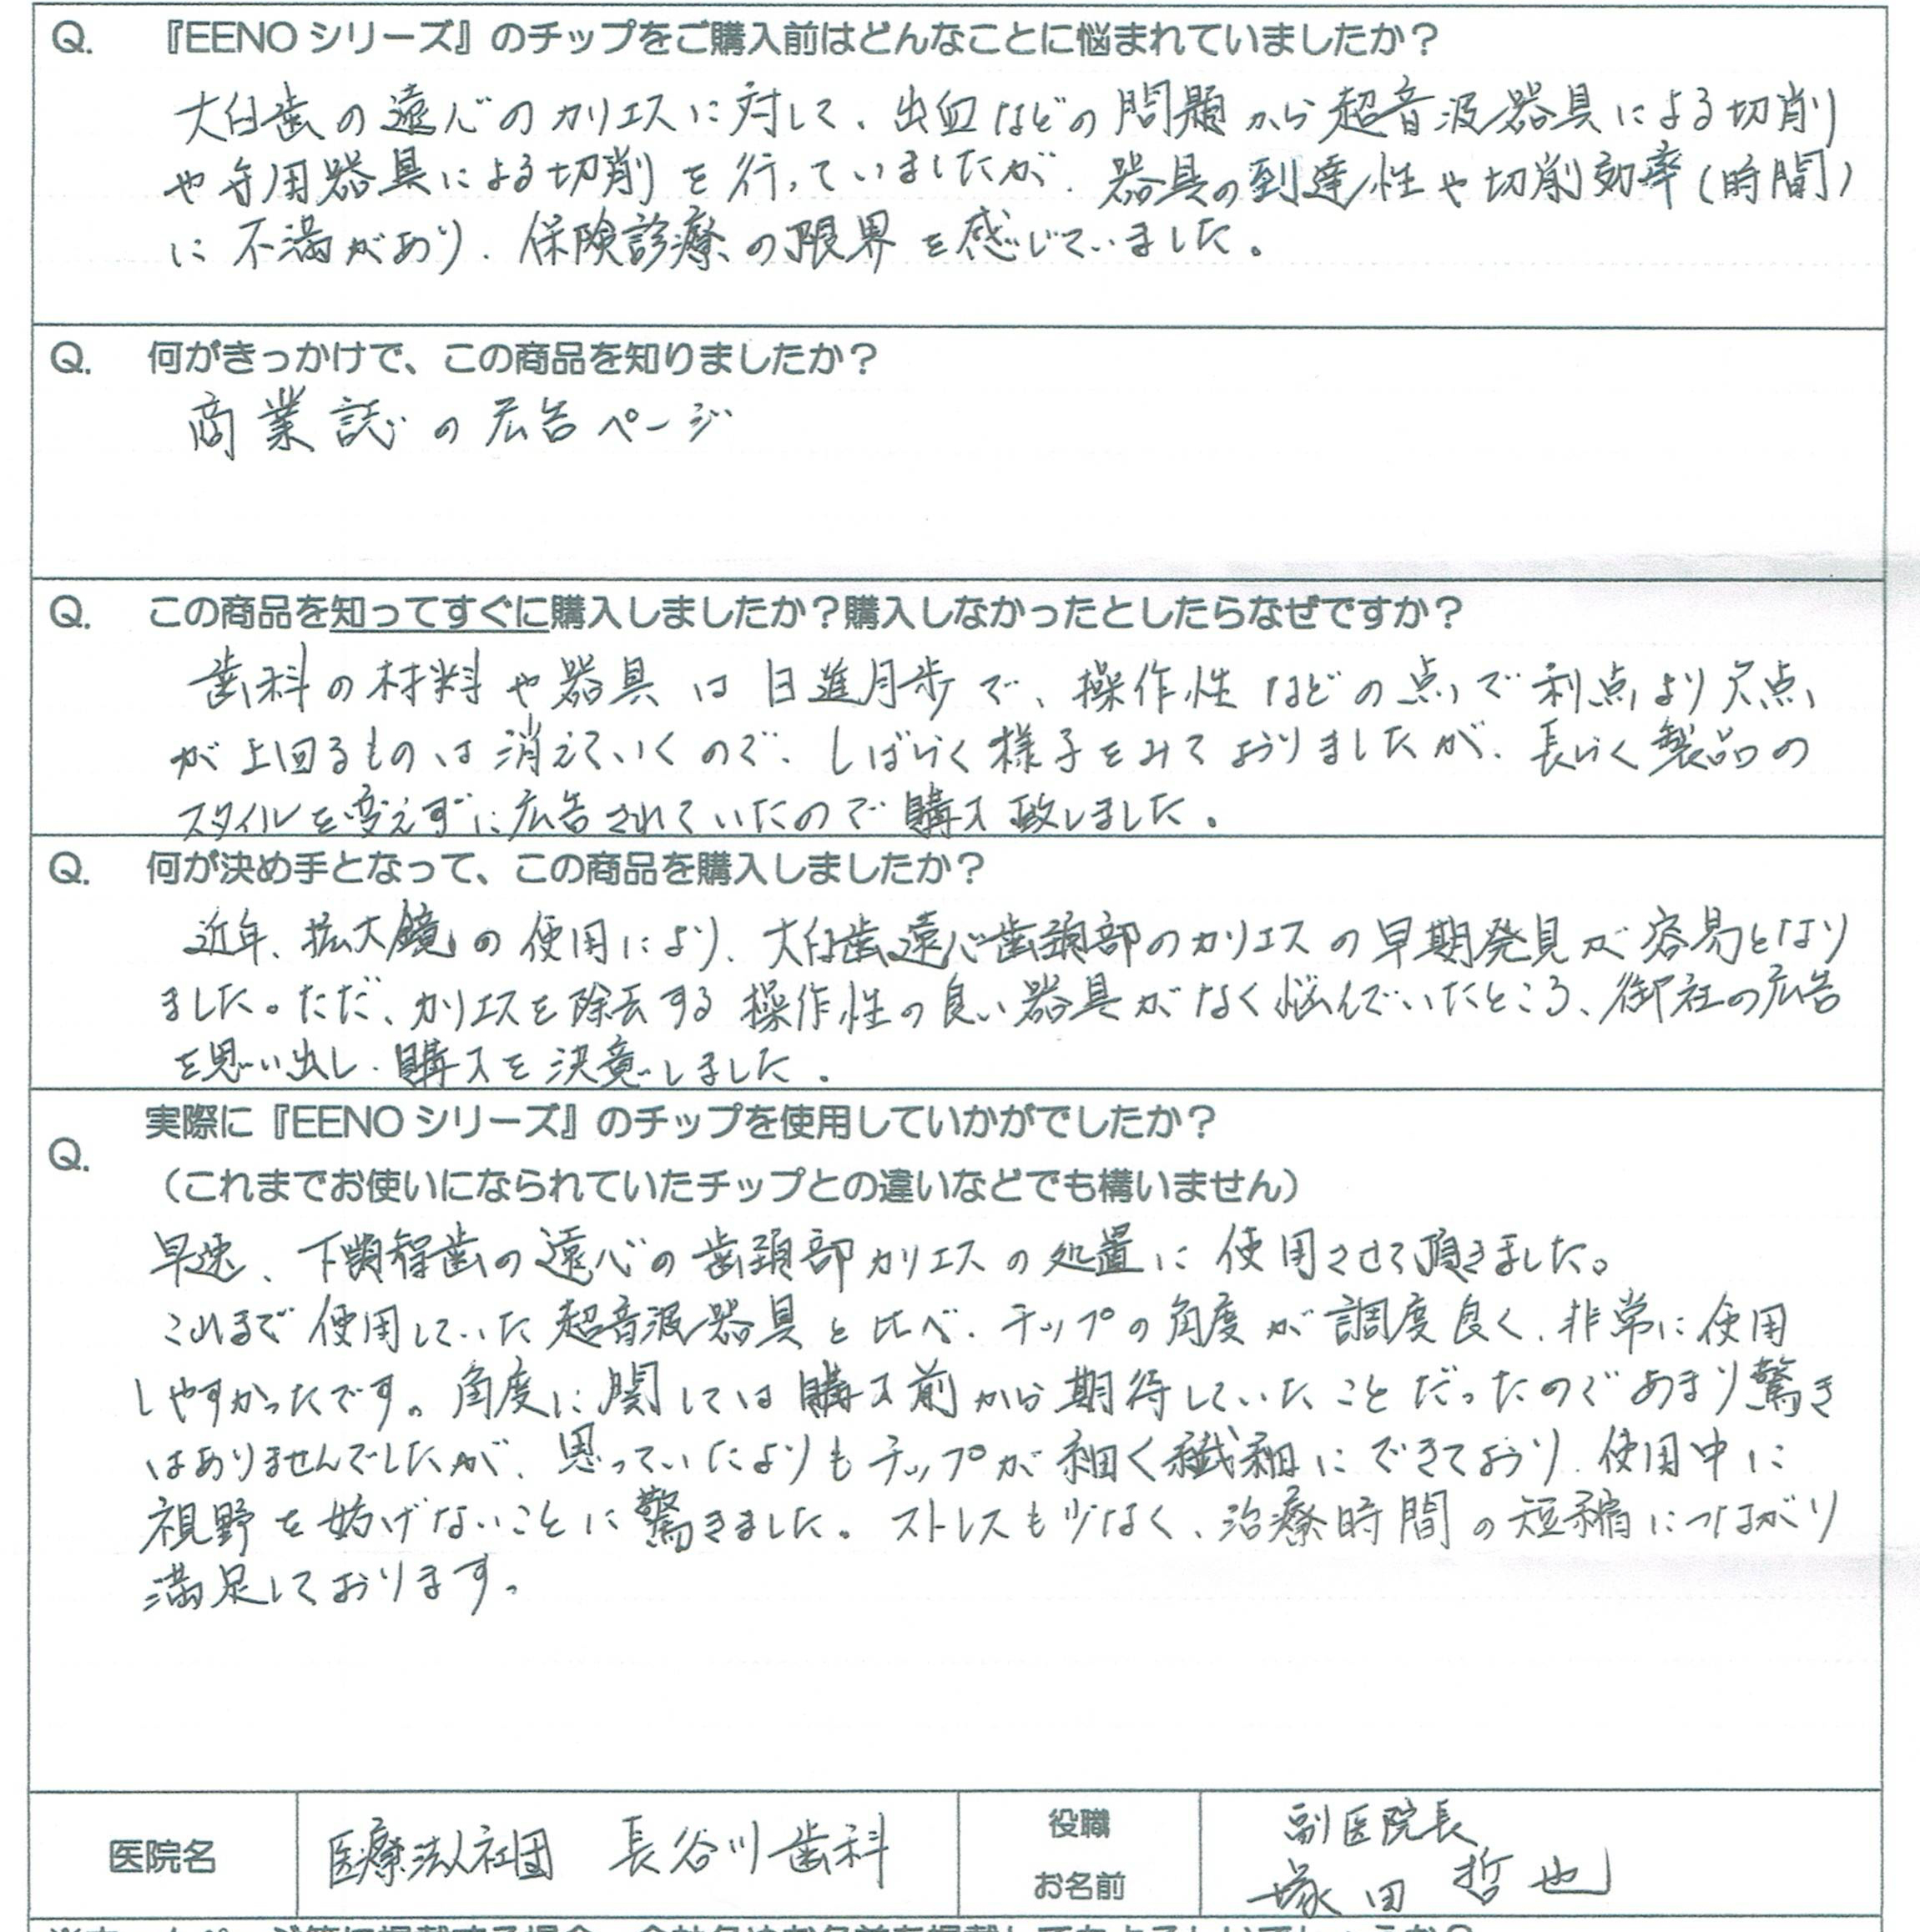 Q. 『EENO シリーズ』のチップをご購入前はどんなことに悩まれていましたか？
大臼歯の遠心のカリエスに対して、出血などの問題から超音波器具による切削
や専用器具による切削を行っていましたが、器具の到達性や切削効率(時間)
に不満があり、保険診療の限界を感じていました。
Q. 何がきっかけで、この商品を知りましたか？
商業誌の広告ページ
Q. この商品を知ってすぐに購入しましたか？購入しなかったとしたらなぜですか？
歯科の材料や器具は日進月歩で、操作性などの点で利点より欠点
が上回るものは消えていくので、しばらく様子をみておりましたが、長らく製品の
スタイルを変えずに広告されていたので購入致しました。
Q. 何が決め手となって、この商品を購入しましたか？
近年、拡大鏡の使用により、大臼歯遠心歯頚部のカリエスの早期発見が容易となり
ました。ただ、カリエスを除去する操作性の良い器具がなく悩んでいたところ、御社の広告
を思い出し、購入を決意しました。
Q. 実際に『EENO シリーズ』のチップを使用していかがでしたか？
（これまでお使いになられていたチップとの違いなどでも構いません）
早速、下顎智歯の遠心の歯頚部カリエスの処置に使用させて頂きました。
これまで使用していた超音波器具と比べ、チップの角度が調度良く、非常に使用
しやすかったです。角度に関しては購入前から期待していたことだったのであまり驚き
はありませんでしたが、思っていたよりもチップが細く繊細にできており、使用中に
視野を妨げないことに驚きました。ストレスも少なく、治療時間の短縮につながり
満足しております。
医院名 医療法人社団 長谷川歯科 役職 副医院長
お名前 塚田 哲也